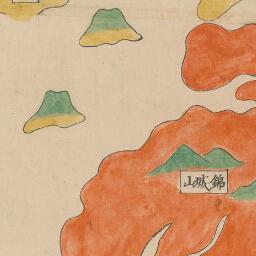 錦城山